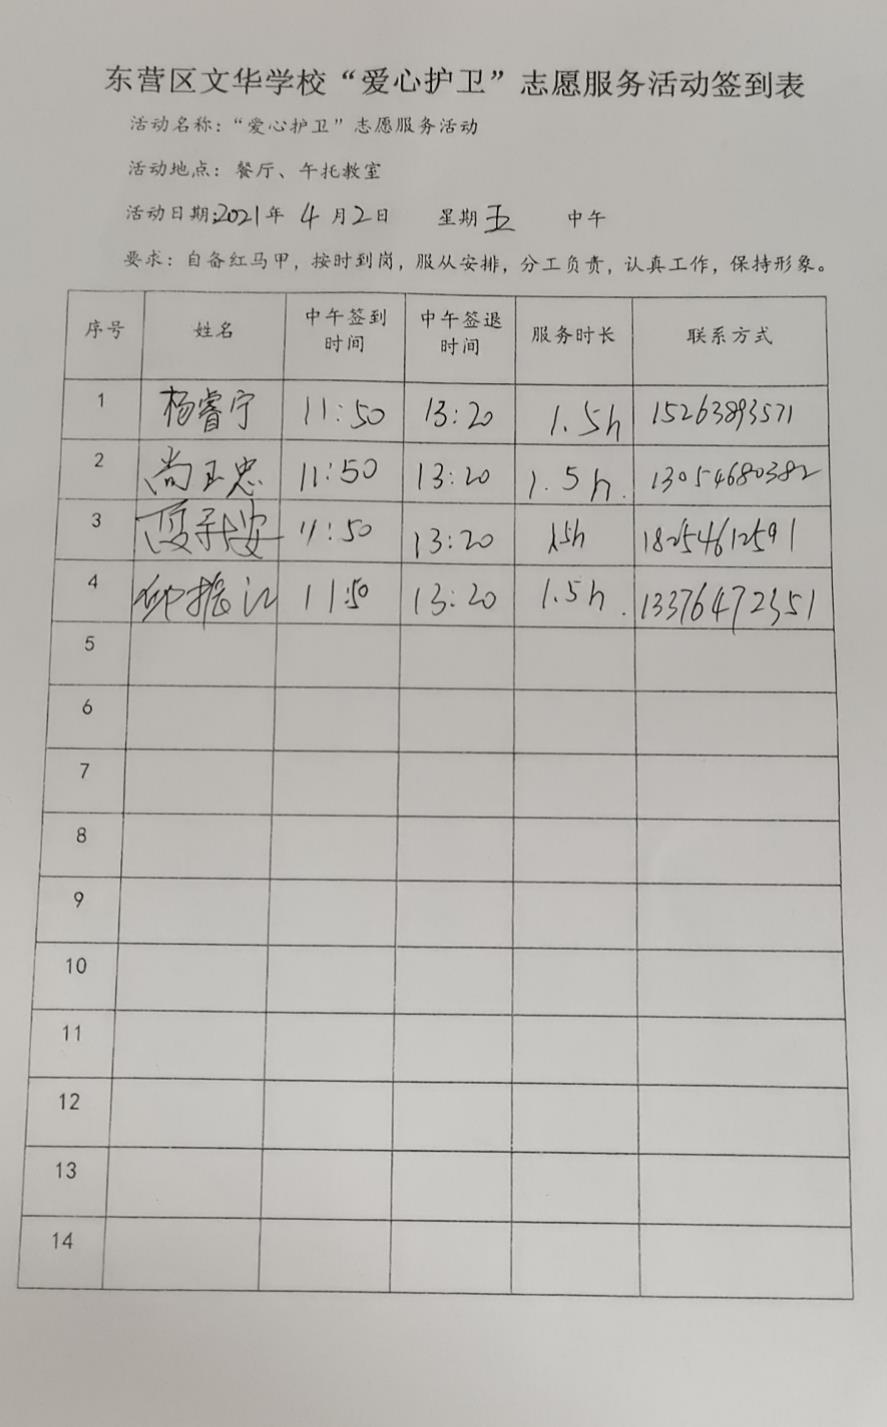 东营区文华学校“爱心护卫”志愿服务活动签到表
活动名称：“爱心护卫”志愿服务活动
活动地点：餐厅、午托教室
活动日期：2021年 4 月 2 日 星期 五 中午
要求：自备红马甲，按时到岗，服从安排，分工负责，认真工作，保持形象。
序号 姓名 中午签到时间 中午签退时间 服务时长 联系方式
1 杨睿宁 11:50 13:20 1.5h 15263893571
2 尚玉忠 11:50 13:20 1.5h. 13054680382
3 11:50 13:20 1.5h 18254612591
4 钟振江 11:50 13:20 1.5h. 13376472351
5
6
7
8
9
10
11
12
13
14